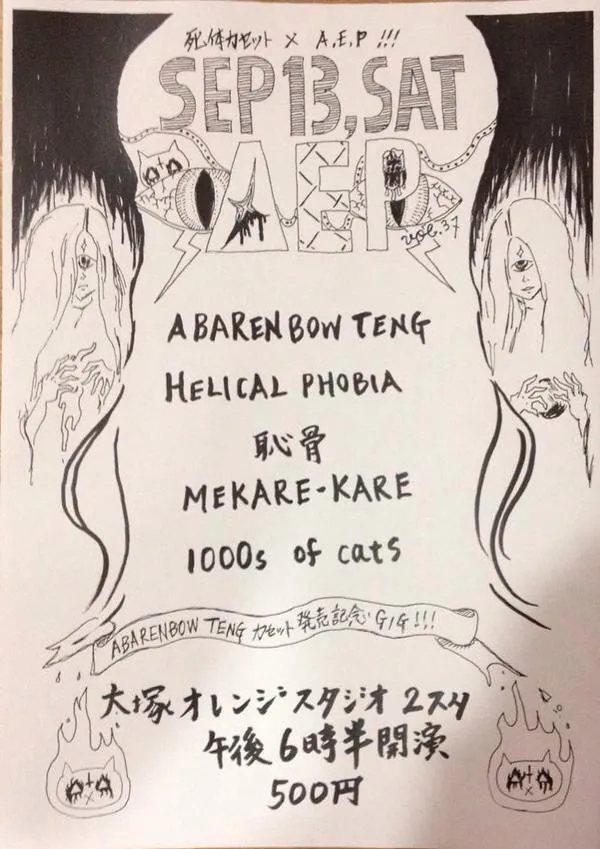 死体カセット × A.E.P !!!
SEP 13, SAT
AEP
vol.37
ABARENBOW TENG
HELICAL PHOBIA
恥骨
MEKARE-KARE
1000s of cats
ABARENBOW TENG カセット 発売記念 GIG!!!
大塚オレンジスタジオ 2スタ
午後6時半開演
500円